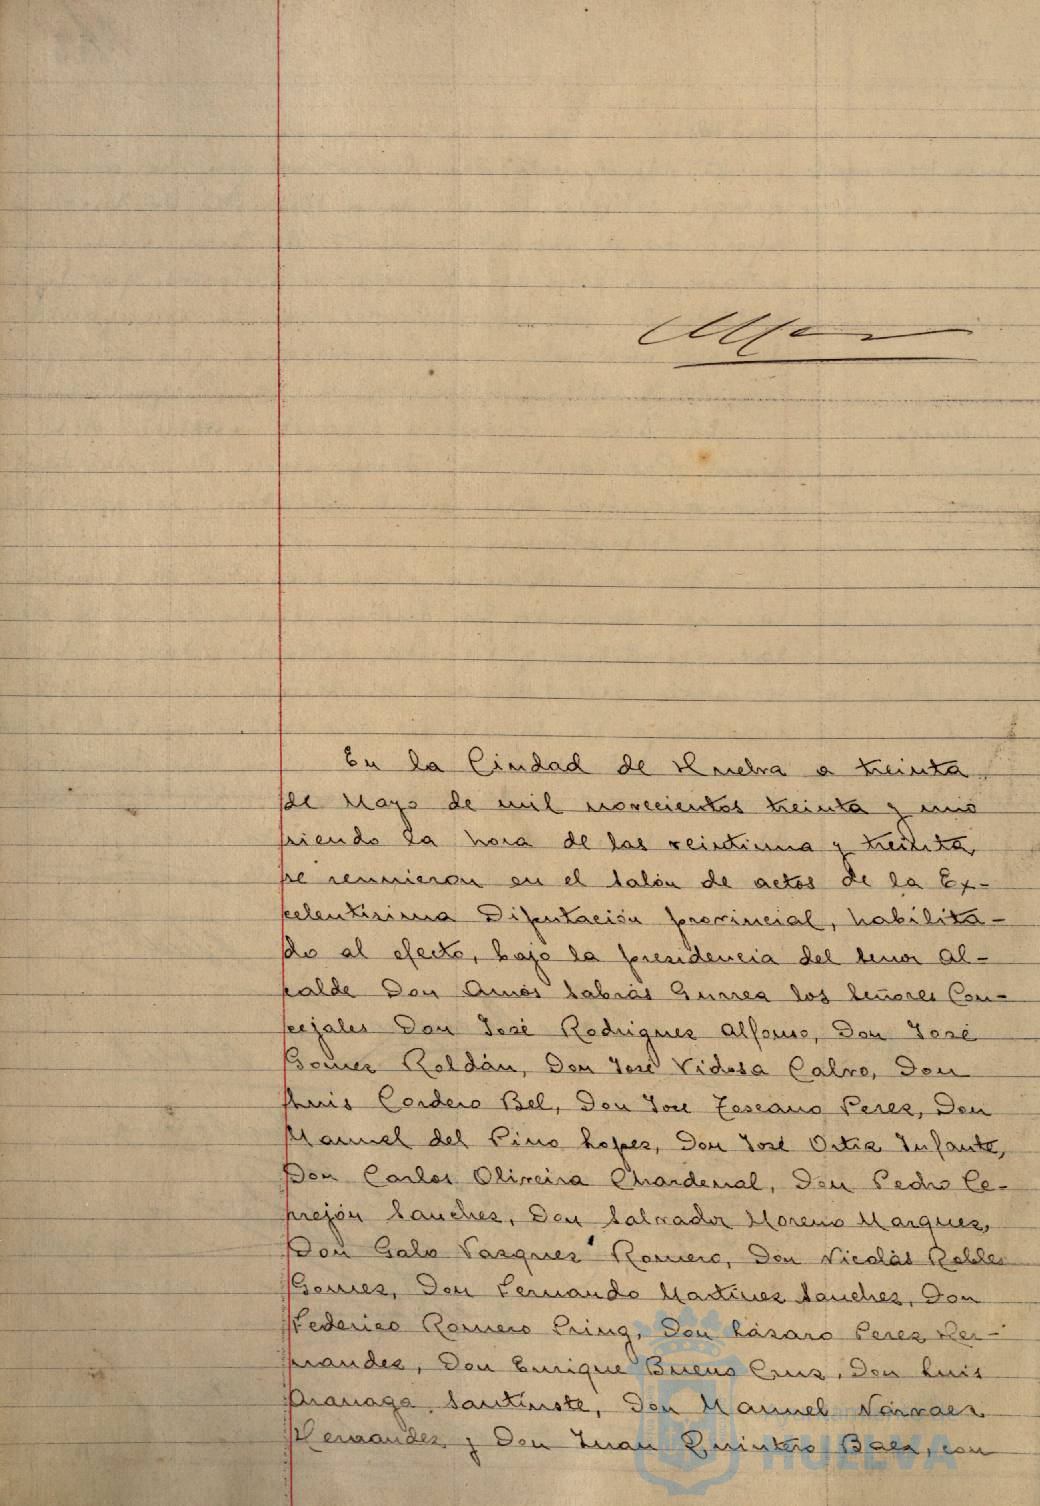 En la Ciudad de Huelva a treinta
de Mayo de mil novecientos treinta y uno
siendo la hora de las veintiuna y treinta,
se reunieron en el Salón de actos de la Ex-
celentisima Diputación provincial, habilita-
do al efecto, bajo la presidencia del Senor Al-
calde Don Amós Sabrás Gurrea los Señores Con-
cejales Don José Rodriguez Alfonso, Don José
Gomez Roldán, Don José Vidosa Calvo, Don
Luis Cordero Bel, Don José Toscano Perez, Don
Manuel del Pino Lopez, Don José Ortiz Infante,
Don Carlos Oliveira Chardenal, Don Pedro Ce-
rrejón Sanchez, Don Salvador Moreno Marquez,
Don Galo Vazquez Romero, Don Nicolás Robles
Gomez, Don Fernando Martinez Sanchez, Don
Federico Romero Pring, Don Lázaro Perez Her-
nandez, Don Enrique Bueno Cruz, Don Luis
Aranaga Santiuste, Don Manuel Narvaez
Hernandez y Don Juan Quintero Baez, con
HUELVA